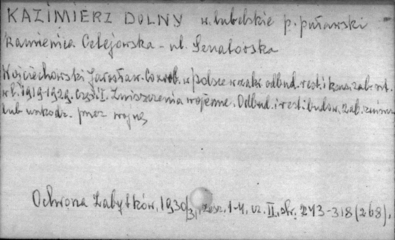 KAZIMIERZ DOLNY w. lubelskie p. puławski
Kamienica Celejowska - ul. Senatorska
Wojciechowski Jarosław. Co zrob. w Polsce w zakr. odbud. rest. i konserw. zab. art.
w l. 1919-1929. Część I. Zniszczenia wojenne. Odbud. i rest. budow. zab. zniszcz.
lub uszkodz. przez wojnę
Ochrona Zabytków, 1930/31, zesz. 1-4, cz. II, str. 243-318 (268).